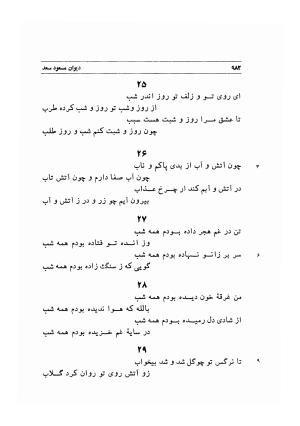 ۹۸۲ دیوان مسعود سعد
۲۵
ای روی تو و زلف تو روز اندر شب
از روز وشب تو روز و شب کرده طرب
تا عشق مرا روز و شبت هست سبب
چون روز و شبت کنم شب و روز طلب
۲۶
۳ چون آتش و آب از بدی پاکم و تاب
چون آب صفا دارم و چون آتش تاب
در آتش و آبم کند ار چرخ عذاب
بیرون آیم چو زر و در ز آتش و آب
۲۷
تن در غم هجر داده بودم همه شب
وز انده تو فتاده بودم همه شب
۶ سر بر زانو نهاده بودم همه شب
گویی که ز سنگ زاده بودم همه شب
۲۸
من غرقهٔ خون دیده بودم همه شب
بالله که هوا ندیده بودم همه شب
از شادی دل رمیده بودم همه شب
در سایهٔ غم خزیده بودم همه شب
۲۹
۹ تا نرگس تو چوگل شد و شد بیخواب
زو آتش روی تو روان کرد گلاب